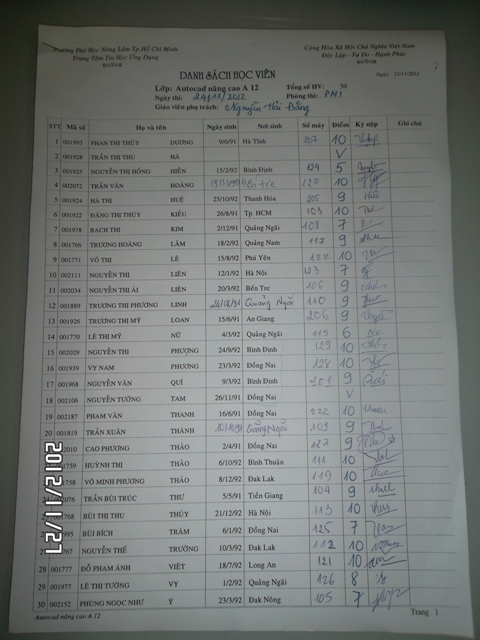 Trường Đại Học Nông Lâm Tp.Hồ Chí Minh
Trung Tâm Tin Học Ứng Dụng
Cộng Hòa Xã Hội Chủ Nghĩa Việt Nam
Độc Lập - Tự Do - Hạnh Phúc
Ngày 23/11/2012
DANH SÁCH HỌC VIÊN
Lớp: Autocad nâng cao A 12 Tổng số HV: 30
Ngày thi: 24/11/2012 Phòng thi: PM1
Giáo viên phụ trách: Nguyễn Hải Đăng
STT Mã số Họ và tên Ngày sinh Nơi sinh Số máy Điểm Ký nộp Ghi chú
1 001993 PHAN THỊ THÙY DƯƠNG 9/6/91 Hà Tĩnh 207 10
2 001928 TRẦN THỊ THU HÀ V
3 001925 NGUYỄN THỊ HỒNG HIÊN 15/2/92 Bình Định 124 5
4 002072 TRẦN VĂN HOÀNG Bến tre 120 10
5 001924 HÀ THỊ HUỆ 25/10/92 Thanh Hóa 205 9
6 001922 ĐẶNG THỊ THÚY KIỀU 26/8/91 Tp. HCM 103 10
7 001978 BẠCH THỊ KIM 2/12/91 Quảng Ngãi 108 7
8 001766 TRƯƠNG HOÀNG LÂM 18/2/92 Quảng Nam 117 9
9 001771 VÕ THỊ LÊ 15/8/92 Phú Yên 122 10
10 002111 NGUYỄN THỊ LIÊN 12/1/92 Hà Nội 123 7
11 002034 NGUYỄN THỊ ÁI LIÊN 20/3/92 Bến Tre 106 9
12 001889 TRƯƠNG THỊ PHƯƠNG LINH 24/08/91 Quảng Ngãi 110 9
13 001926 TRƯƠNG THỊ MỸ LOAN 15/6/91 An Giang 206 9
14 001770 LÊ THỊ MỸ NỮ 4/3/92 Quảng Ngãi 115 6
15 002029 NGUYỄN THỊ PHƯỢNG 24/9/92 Bình Định 129 10
16 001939 VY NAM PHƯƠNG 23/3/92 Đồng Nai 128 10
17 001968 NGUYỄN VĂN QUÍ 9/3/92 Bình Định 201 9 Quí
18 002106 NGUYỄN TƯỜNG TAM 26/11/91 Đồng Nai V
19 002187 PHẠM VĂN THANH 16/6/91 Đồng Nai 222 10
20 001819 TRẦN XUÂN THÀNH 10/10/91 Quảng Ngãi 109 9
2010 CAO PHƯƠNG THẢO 2/4/91 Đồng Nai 127 9
1759 HUỲNH THỊ THẢO 6/10/92 Bình Thuận 111 10
1758 VÕ MINH PHƯƠNG THẢO 8/12/92 Đak Lak 119 10
2076 TRẦN BÙI TRÚC THƯ 5/5/91 Tiền Giang 104 9
1768 BÙI THỊ THU THỦY 21/12/92 Hà Nội 113 10
995 BÙI BÍCH TRÂM 6/1/92 Đồng Nai 125 7
767 NGUYỄN THẾ TRƯỜNG 10/3/92 Đak Lak 112 10
28 001777 ĐỖ PHẠM ÁNH VIỆT 18/7/92 Long An 121 10
29 001977 LÊ THỊ TƯỜNG VY 1/2/92 Quảng Ngãi 126 8
30 002152 PHÙNG NGỌC NHƯ Ý 23/3/92 Đak Nông 105 7
Autocad nâng cao A 12 Trang 1
2012/11/27